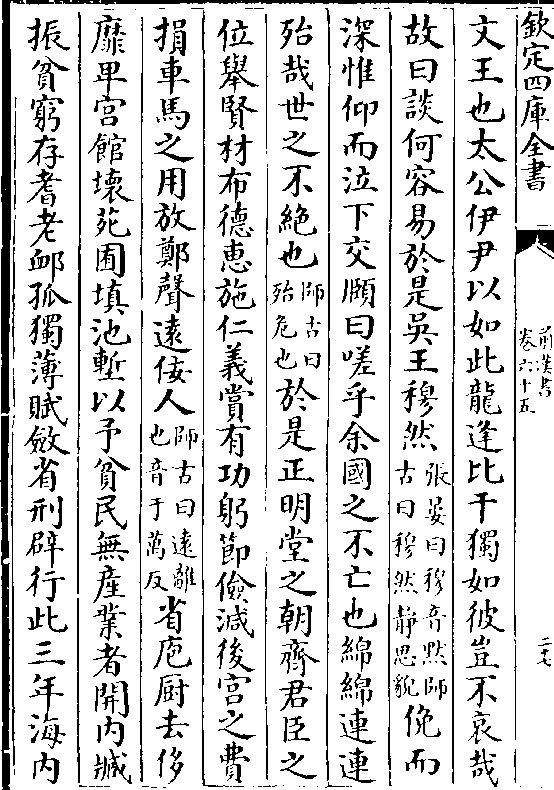 欽定四庫全書
前漢書
卷六十五
二七
文王也太公伊尹以如此龍逢比干獨如彼豈不哀哉
故曰談何容易於是吳王穆然張晏曰穆音默師古曰穆然靜思貌俛而
深惟仰而泣下交頥曰嗟乎余國之不亡也綿綿連連
殆哉世之不絕也師古曰殆危也於是正明堂之朝齊君臣之
位舉賢材布德惠施仁義賞有功躬節儉減後宮之費
損車馬之用放鄭聲遠佞人師古曰遠離也音于萬反省庖厨去侈
靡卑宮館壞苑囿填池塹以予貧民無産業者開内臧
振貧窮存耆老䘏孤獨薄賦斂省刑辟行此三年海内